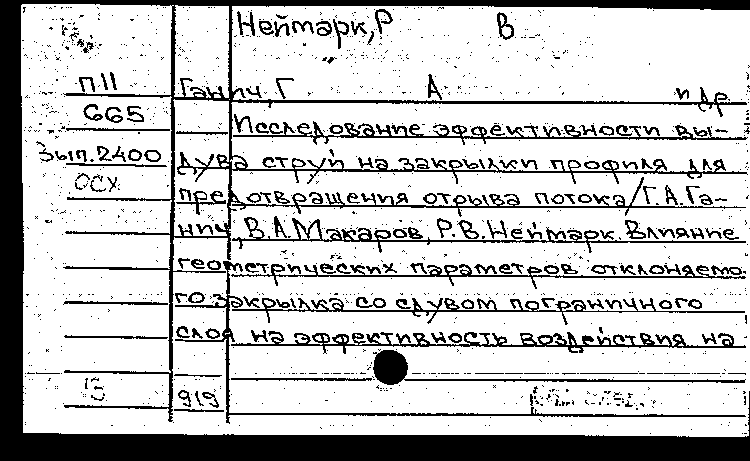 Неймарк, Р В
П11 Ганич, Г А и др
665 Исследование эффективности вы-
Вып.2400 дува струй на закрылки профиля для
ОСХ предотвращения отрыва потока/Г.А.Га-
нич, В.А.Макаров, Р.В.Неймарк. Влияние
геометрических параметров отклоняемо
го закрылка со сдувом пограничного
слоя на эффективность воздействия на
919